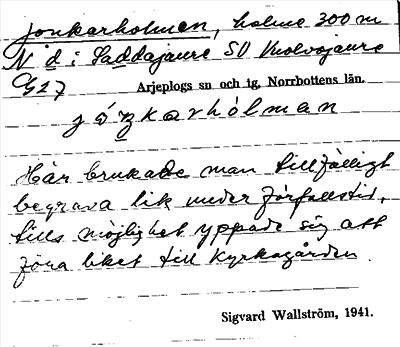 Jonkarholmen, holme 300 m
N d i Saddajaure SV Vuolvojaure
G27
Arjeplogs sn och tg, Norrbottens län.
Här brukade man tillfälligt
begrava lik under förfallstid,
tills möjlighet yppade sig att
föra liket till kyrkogården.
Sigvard Wallström, 1941.